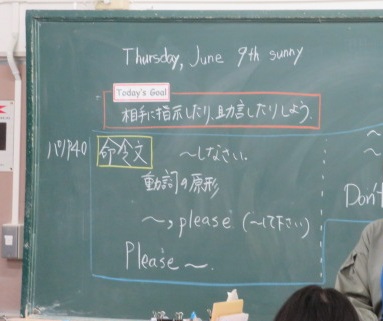 Thursday, June 9th sunny
Today's Goal
相手に指示したり、助言したりしよう.
命令文 ～しなさい.
動詞の原形
～, please (～して下さい)
Please ～.
Don't